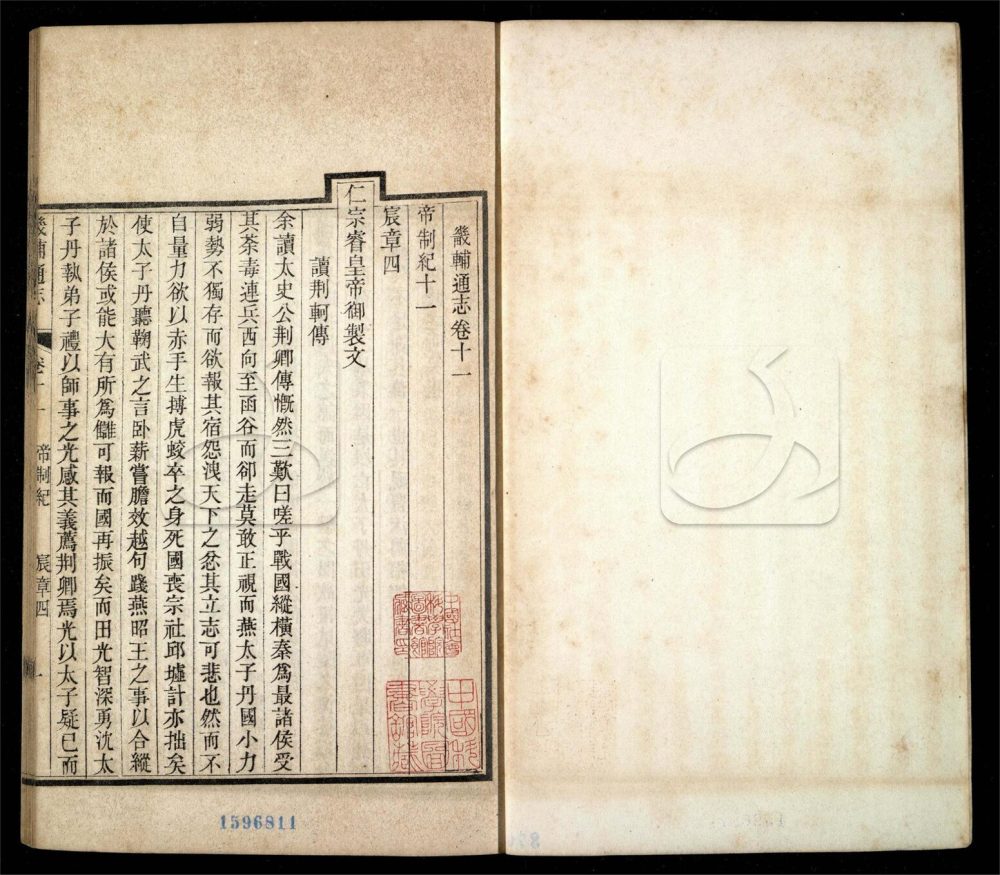 畿輔通志卷十一
帝制紀十一
宸章四
仁宗睿皇帝御製文
讀荆軻傳
余讀太史公荆卿傳慨然三歎曰嗟乎戰國縱橫秦爲最諸侯受
其荼毒連兵西向至函谷而卻走莫敢正視而燕太子丹國小力
弱勢不獨存而欲報其宿怨洩天下之忿其立志可悲也然而不
自量力欲以赤手生搏虎蛟卒之身死國喪宗社邱墟計亦拙矣
使太子丹聽鞠武之言卧薪嘗膽效越句踐燕昭王之事以合縱
於諸侯或能大有所爲讎可報而國再振矣而田光智深勇沈太
子丹執弟子禮以師事之光感其義薦荆卿焉光以太子疑已而
畿輔通志
卷十一
帝制紀
宸章四
一
1596811